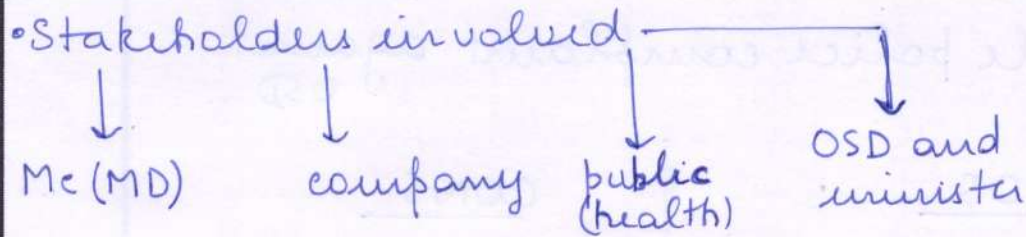 •Stakeholders involved
Me (MD) company public (health) OSD and minister